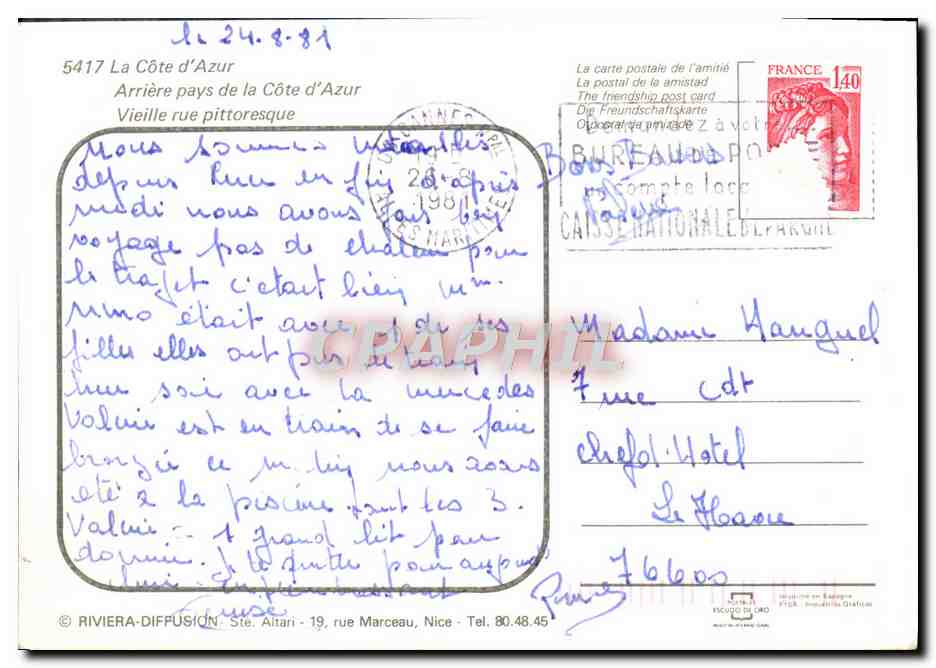 le 24.8.81
5417 La Côte d'Azur
Arrière pays de la Côte d'Azur
Vieille rue pittoresque
nous sommes installés
depuis hier en fin d'après
midi nous avons fais bon
voyage pas de chaleur pour
le trajet c'était bien
était avec et de ses
filles elles ont pris le train
hier soir avec la mercedes
Valérie est en train de se faire
bronzée ce nous avons
été à la piscine tout les 3.
Valérie 1 grand lit pour
dormir. Je te quitte pour aujourd
hui. En t'embrassant
Denise
© RIVIERA-DIFFUSION - Ste. Altari - 19, rue Marceau, Nice - Tel. 80.48.45
La carte postale de l'amitié
La postal de la amistad
The friendship post card
Die Freundschaftskarte
O postal da amizade
FRANCE 1,40
CANNES PPAL
26-8
1981
ALPES MARITIMES
Demandez à votre
BUREAU DE PO
un compte
CAISSE NATIONALE D'EPARGNE
Bons Baisers
Valérie
Madame Hanguel
7 rue Cdt
Chefd-Hotel
Le Havre
76600
CPAPHIL
POSTALES
ESCUDO DE ORO
Imprimé en Espagne